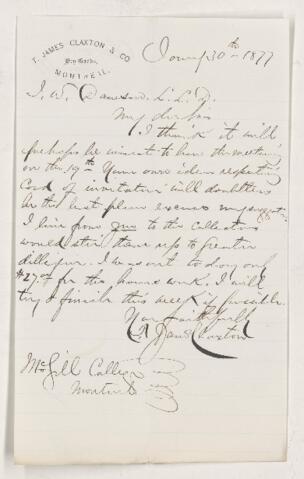 T. JAMES CLAXTON & CO
Dry Goods,
MONTREAL.
30th 1877
J. W. Dawson. L.L.D.
My dear Sir
I think it will
perhaps be wisest to have the meeting
on the 19th Your own ideas respecting
Card of invitation will doubtless
be the best please excuse my suggestion
A line from you to the Collectors
would stir them up to greater
diligence. I went to day only
for the hours work. I will
try & finish this week if possible.
Your faithfully
Jas Claxton
McGill College
Montreal